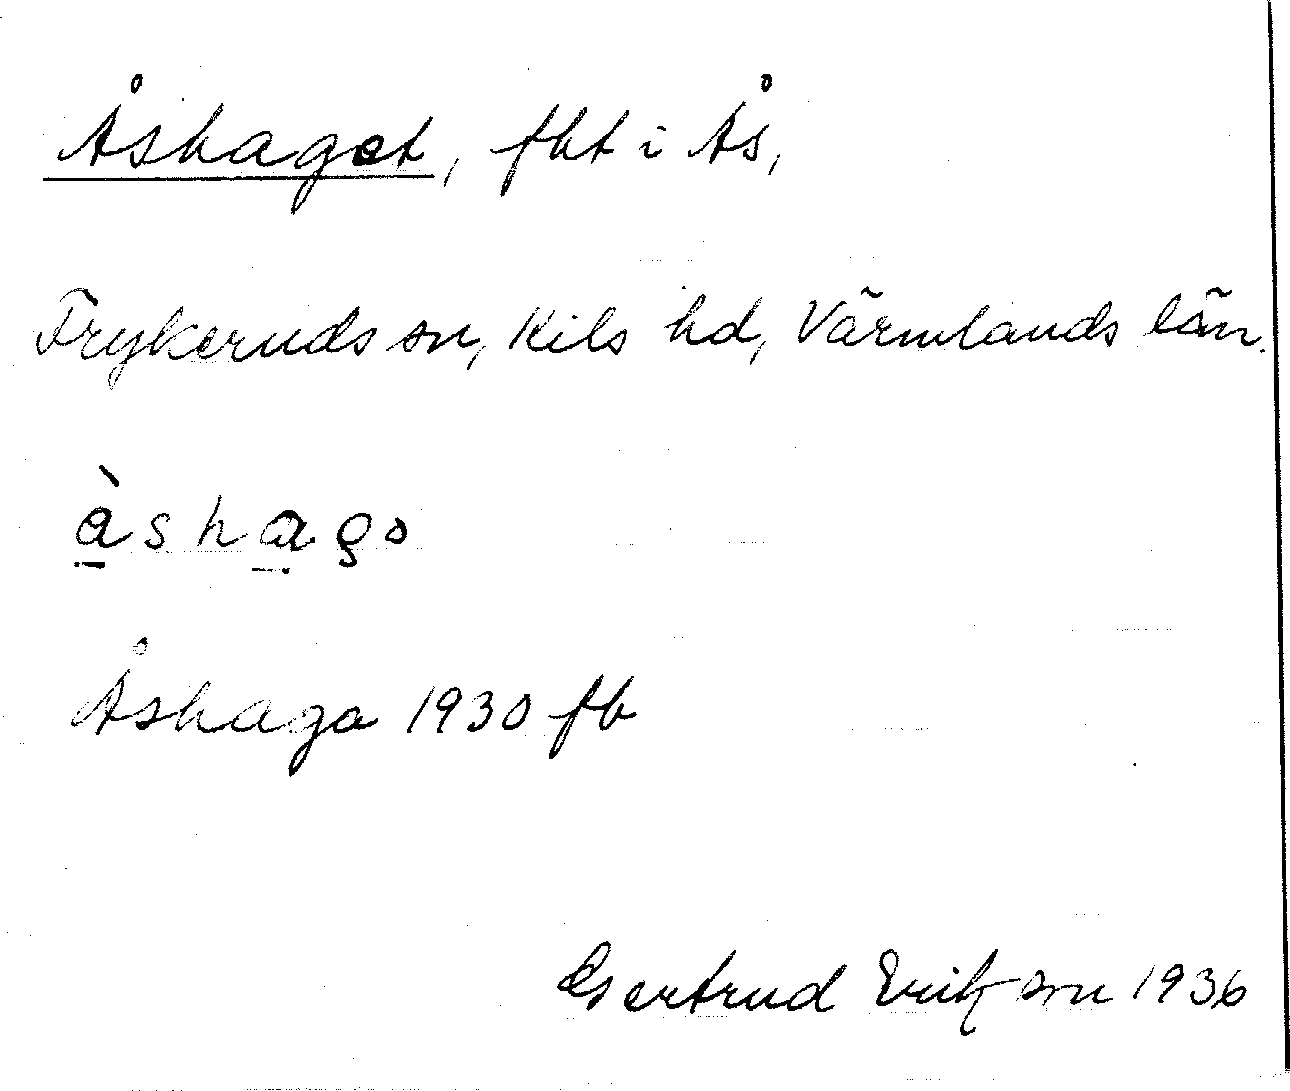 Åshaget, fbt i Ås,
Frykeruds sn, Kils hd, Värmlands län.
å̀shago
Åshaga 1930 fb
Gertrud Erikson 1936